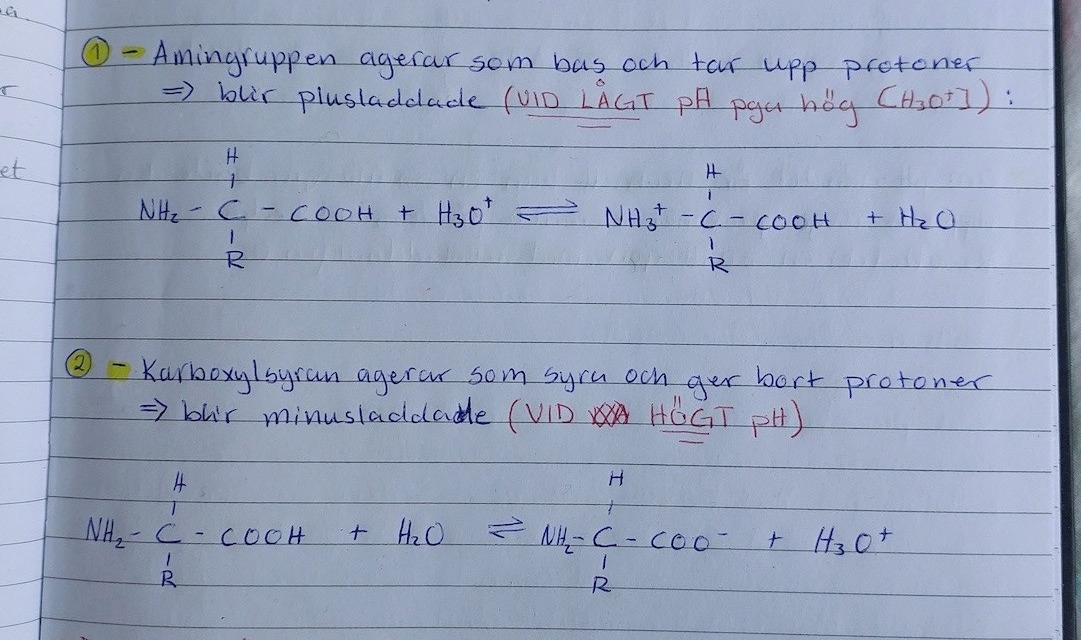 ① - Amingruppen agerar som bas och tar upp protoner
=> blir plusladdade (VID LÅGT pH pga hög [H₃O⁺]):
H
NH₂ - C - COOH + H₃O⁺ ⇌ NH₃⁺ - C - COOH + H₂O
H
R
R
② - Karboxylsyran agerar som syra och ger bort protoner
=> blir minusladdade (VID HÖGT pH)
H
H
NH₂ - C - COOH + H₂O ⇌ NH₂ - C - COO⁻ + H₃O⁺
R
R
et